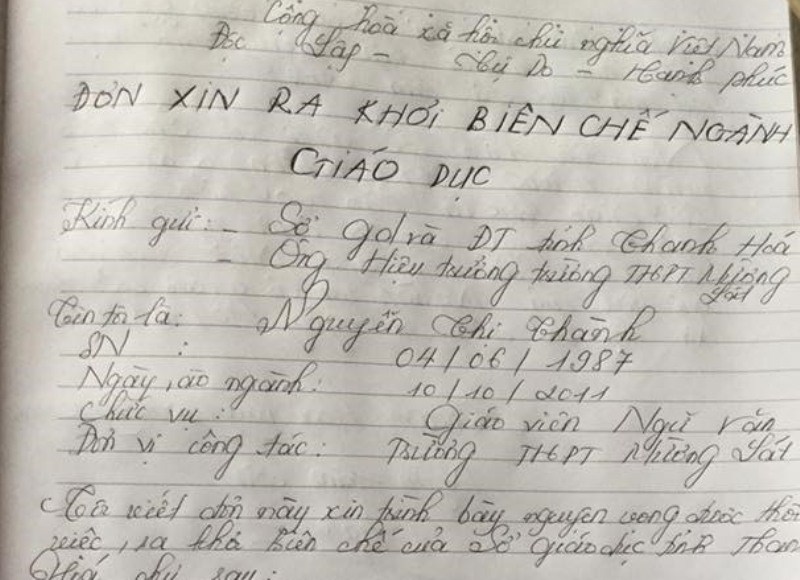 Cộng hoà xã hội chủ nghĩa Việt Nam
Độc Lập - Tự Do - Hạnh phúc
ĐƠN XIN RA KHỎI BIÊN CHẾ NGÀNH
GIÁO DỤC
Kính gửi: - Sở gd và ĐT tỉnh Thanh Hoá
- Ông Hiệu trưởng trường THPT Mường
Lát
Tên tôi là: Nguyễn Thị Thành
SN : 04/06/1987
Ngày vào ngành: 10/10/2011
Chức vụ: Giáo viên Ngữ văn
Đơn vị công tác: Trường THPT Mường Lát
Tôi viết đơn này xin trình bày nguyện vọng được thôi
việc, ra khỏi biên chế của Sở giáo dục tỉnh Thanh
Hoá như sau: